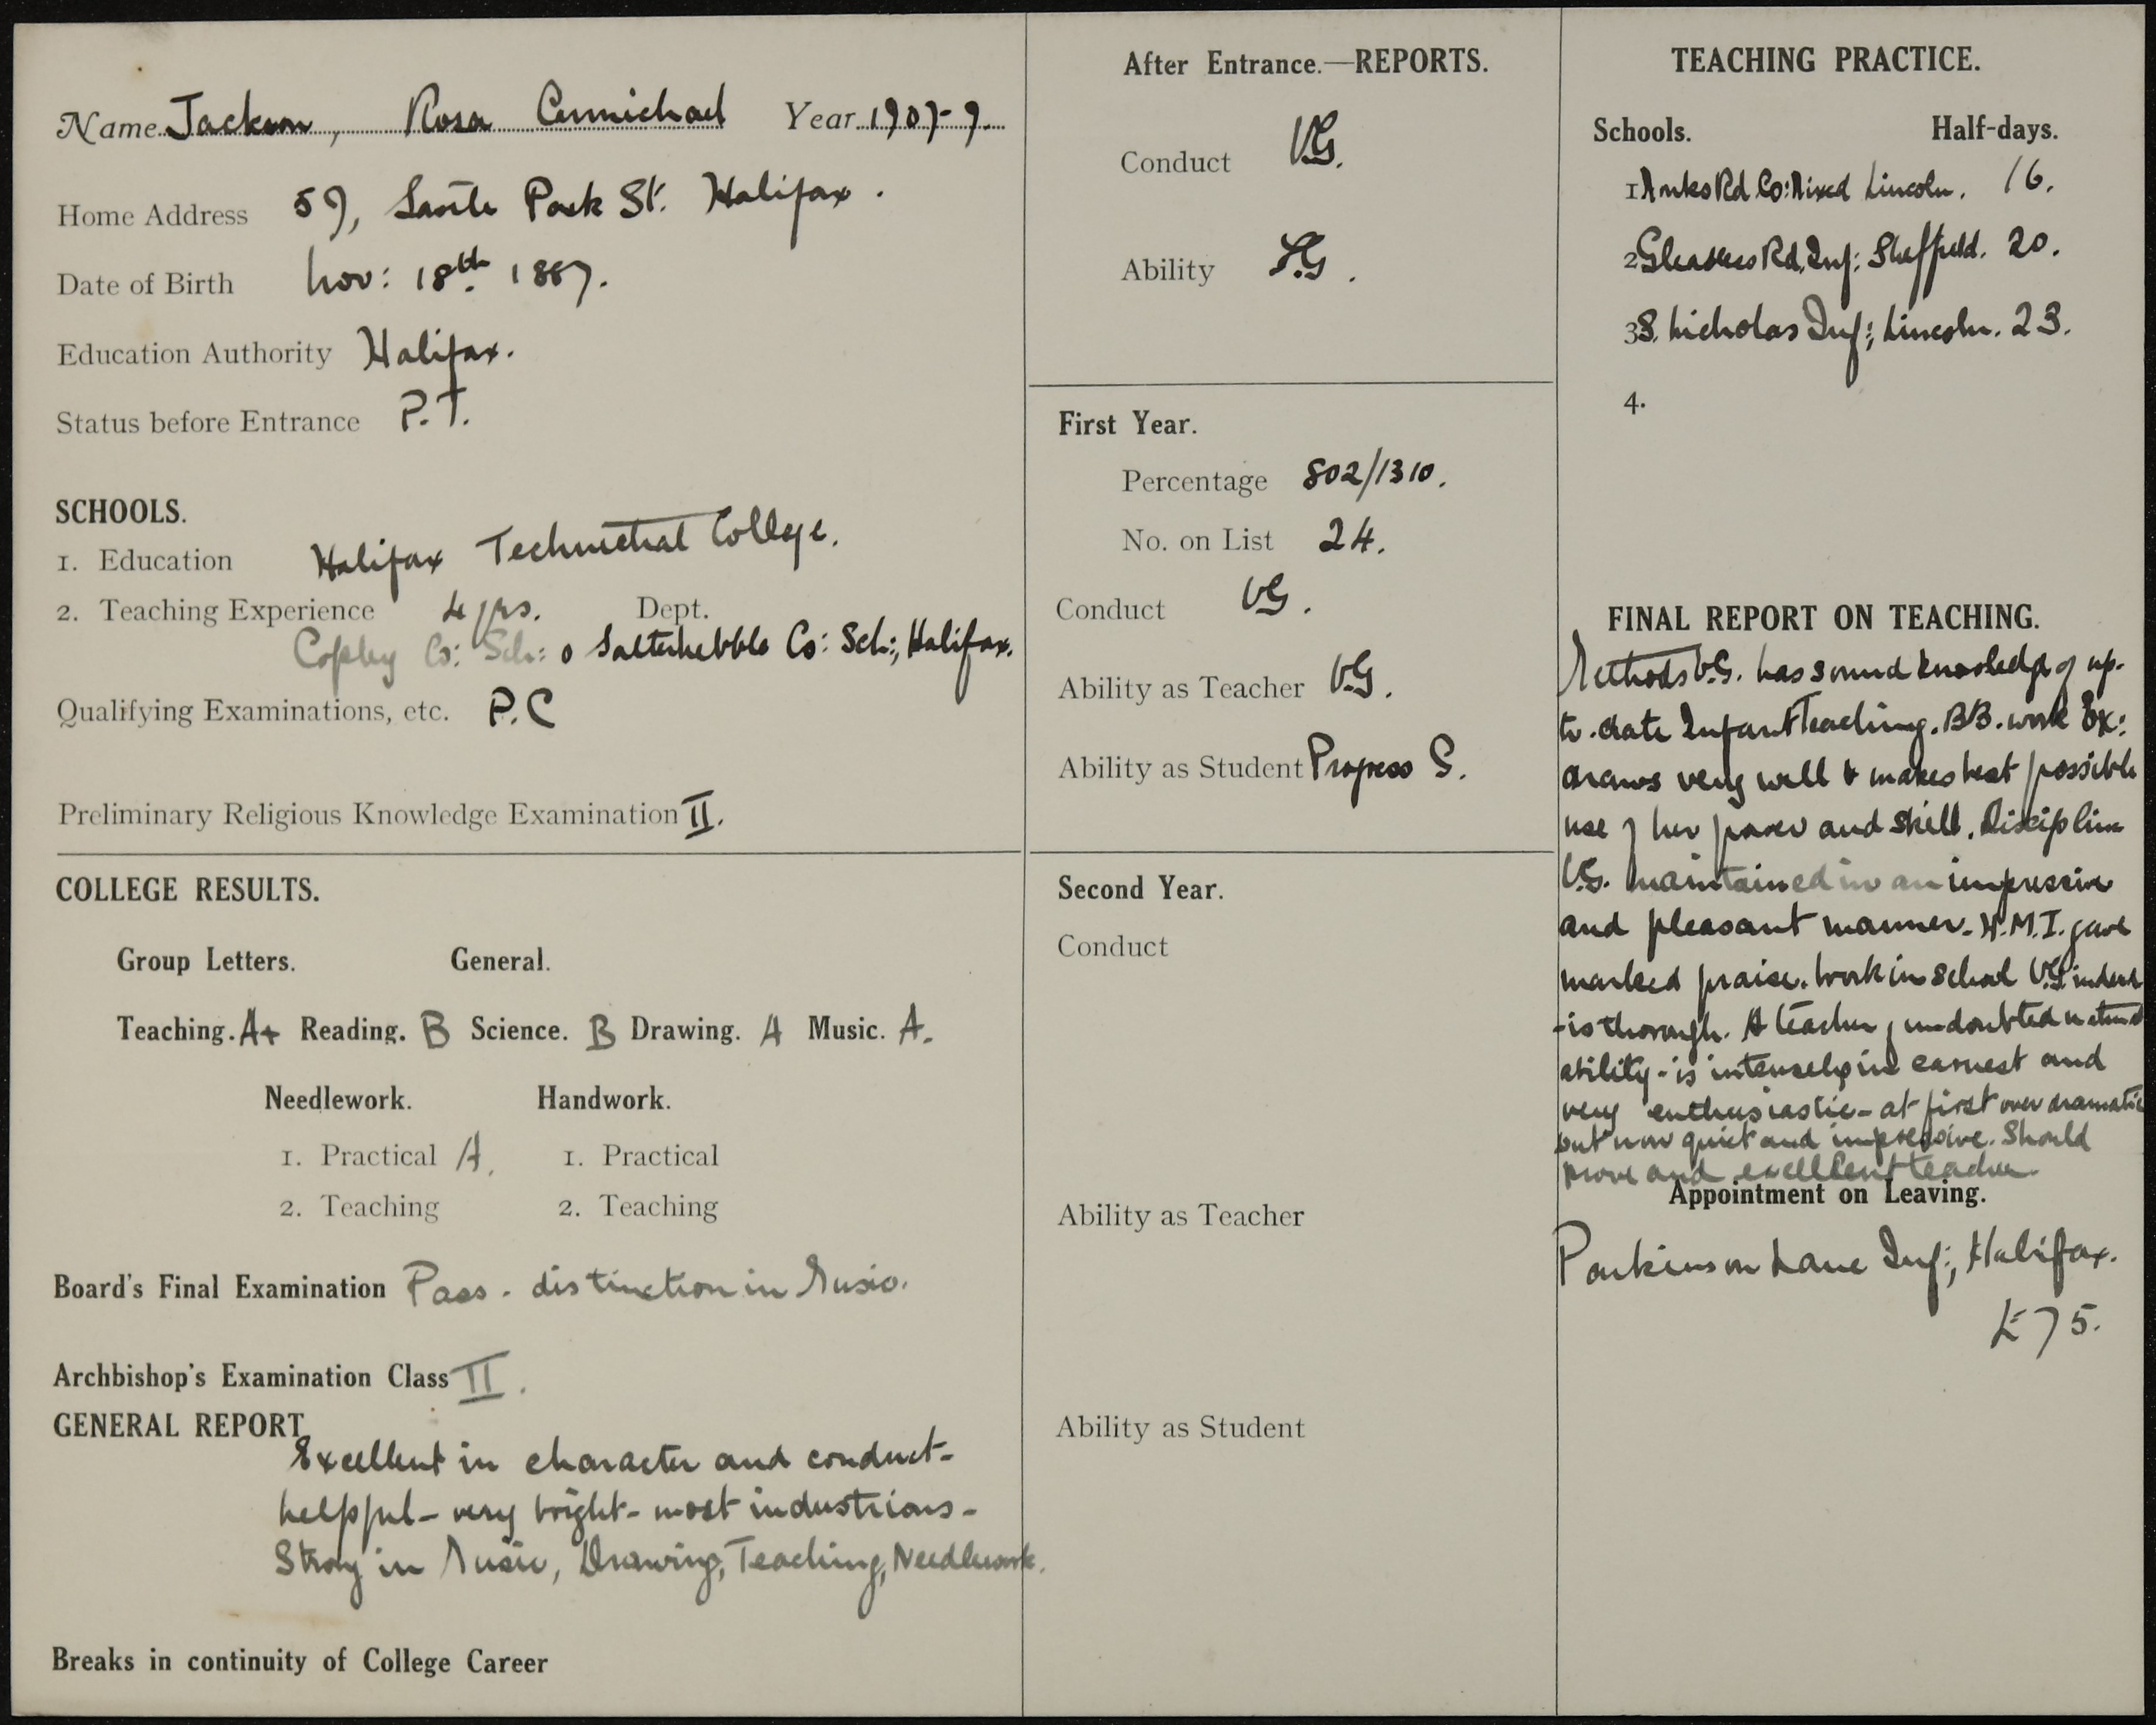 Name Jackson, Rosa Carmichael Year 1907-9.
Home Address 57, Savile Park St. Halifax.
Date of Birth Nov: 18th 1887.
Education Authority Halifax.
Status before Entrance P.T.
SCHOOLS.
1. Education Halifax Technical College.
2. Teaching Experience 4 yrs. Dept.
Copley Co: Sch: Salterhebble Co: Sch:, Halifax.
Qualifying Examinations, etc. P.C
Preliminary Religious Knowledge Examination II.
COLLEGE RESULTS.
Group Letters. General.
Teaching. A+ Reading. B Science. B Drawing. A Music. A.
Needlework. Handwork.
1. Practical A. 1. Practical
2. Teaching 2. Teaching
Board's Final Examination Pass. distinction in Music.
Archbishop's Examination Class II.
GENERAL REPORT
Excellent in character and conduct-
helpful - very bright - most industrious -
Strong in Music, Drawing, Teaching, Needlework.
Breaks in continuity of College Career
After Entrance.—REPORTS.
Conduct V.G.
Ability F.G.
First Year.
Percentage 802/1310.
No. on List 24.
Conduct VG.
Ability as Teacher V.G.
Ability as Student Progress G.
Second Year.
Conduct
Ability as Teacher
Ability as Student
TEACHING PRACTICE.
Schools. Half-days.
1 Monks Rd. Co: Mixed Lincoln. 16.
2 Gleadless Rd. Inf: Sheffield. 20.
3 S. Nicholas Inf:, Lincoln. 23.
4.
FINAL REPORT ON TEACHING.
Methods V.G. has sound knowledge of up-
to-date Infant Teaching. B.B. work Ex:
draws very well & makes best possible
use of her power and skill. Discipline
V.G. maintained in an impressive
and pleasant manner. H.M.I. gave
marked praise. Work in School V.G. indeed
- is thorough. A teacher of undoubted natural
ability - is intensely in earnest and
very enthusiastic - at first over dramatic
but now quiet and impressive. Should
prove and excellent teacher
Appointment on Leaving.
Parkinson Lane Inf:, Halifax.
£75.